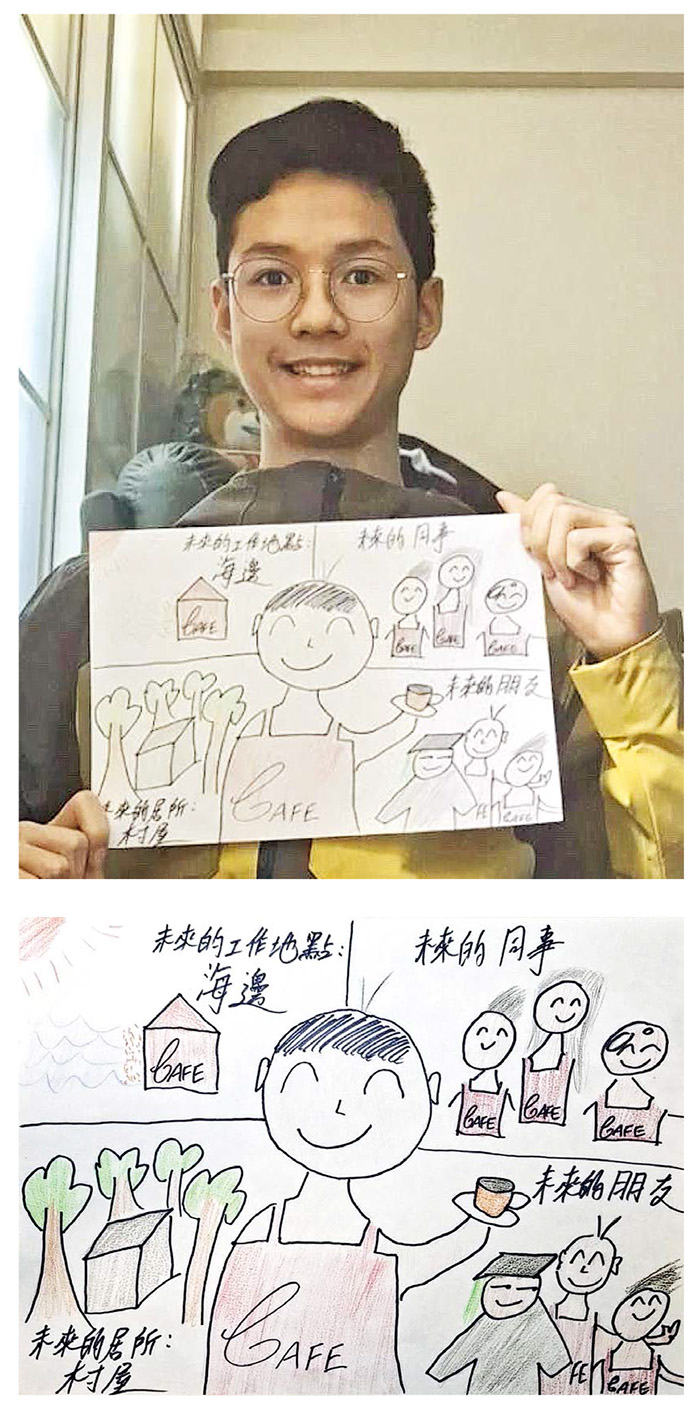 未來的工作地點:
海邊
未來的同事
CAFE
CAFE
CAFE
CAFE
未來的朋友
未來的居所:
村屋
CAFE
FE
CAFE
未來的工作地點:
海邊
未來的同事
CAFE
CAFE
CAFE
CAFE
未來的朋友
未來的居所:
村屋
CAFE
FE
CAFE